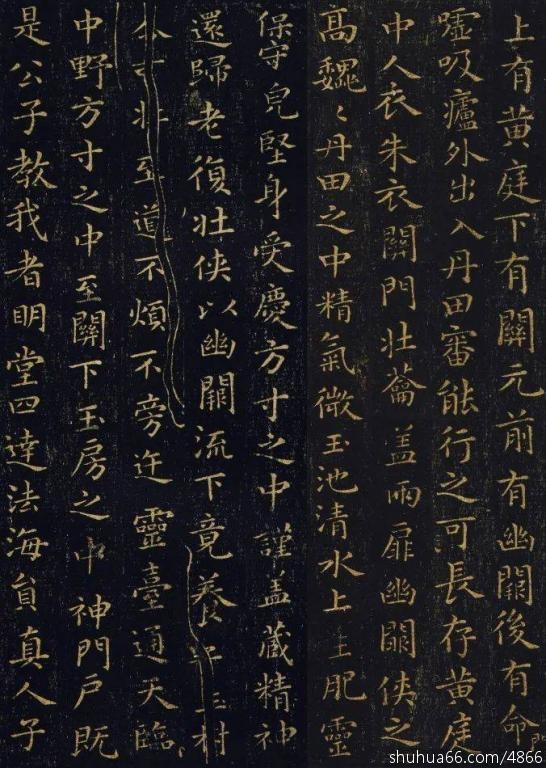 上有黄庭下有關元前有幽闕後有命
嘘吸廬外出入丹田審能行之可長存黄庭
中人衣朱衣關門壮蘥盖兩扉幽闕侠之
高巍〻丹田之中精氣微玉池清水上生肥靈
保守兒堅身受慶方寸之中謹盖蔵精神
還歸老復壮侠以幽闕流下竟養子玉树
不可壮至道不煩不旁迕靈臺通天臨
中野方寸之中至關下玉房之中神門戶既
是公子教我者明堂四達法海員真人子
shuhua66.com/4866